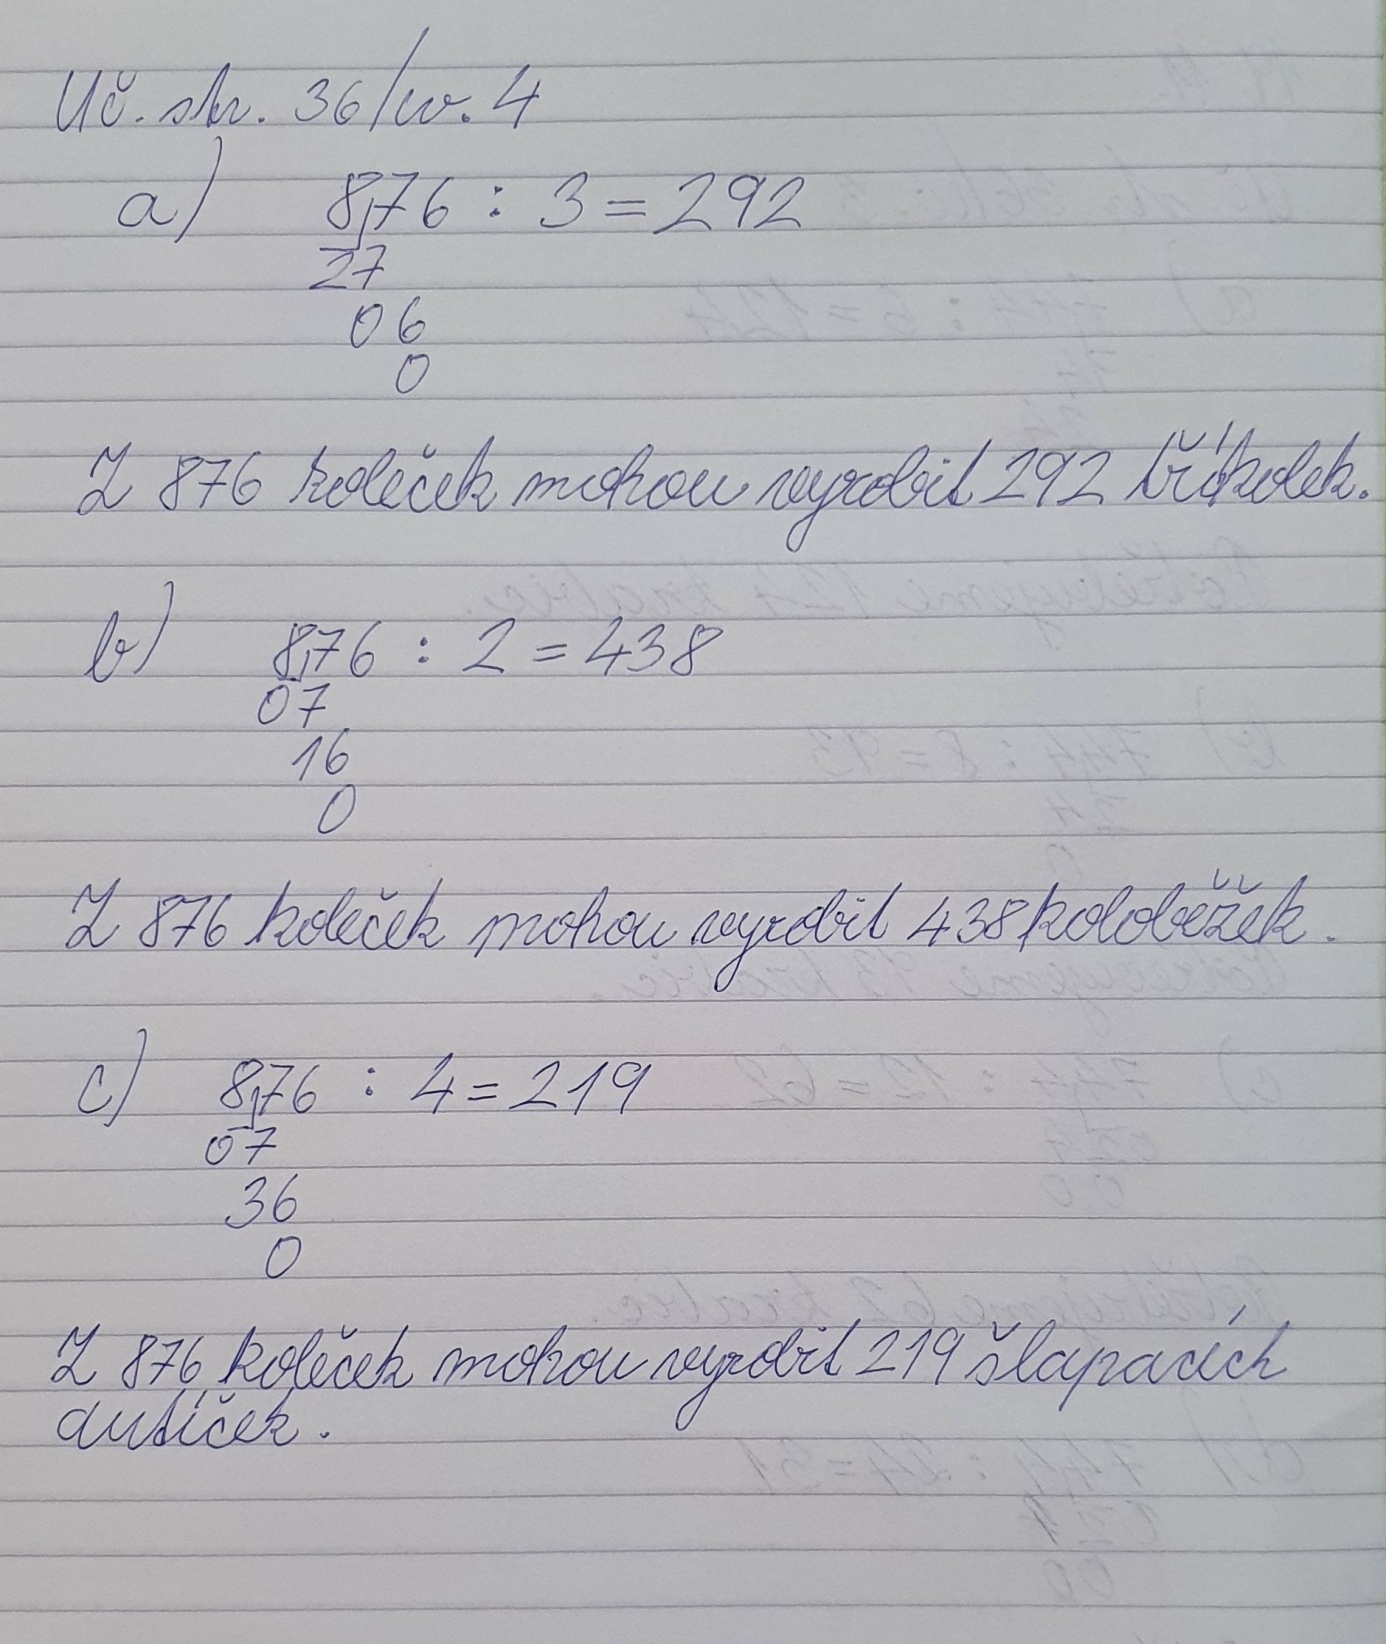 Uč. str. 36/cv. 4
a) 8,76 : 3 = 292
27
06
0
Z 876 koleček mohou vyrobit 292 tříkolek.
b) 8,76 : 2 = 438
07
16
0
Z 876 koleček mohou vyrobit 438 koloběžek.
c) 8,76 : 4 = 219
07
36
0
Z 876 koleček mohou vyrobit 219 šlapacích
autíček.